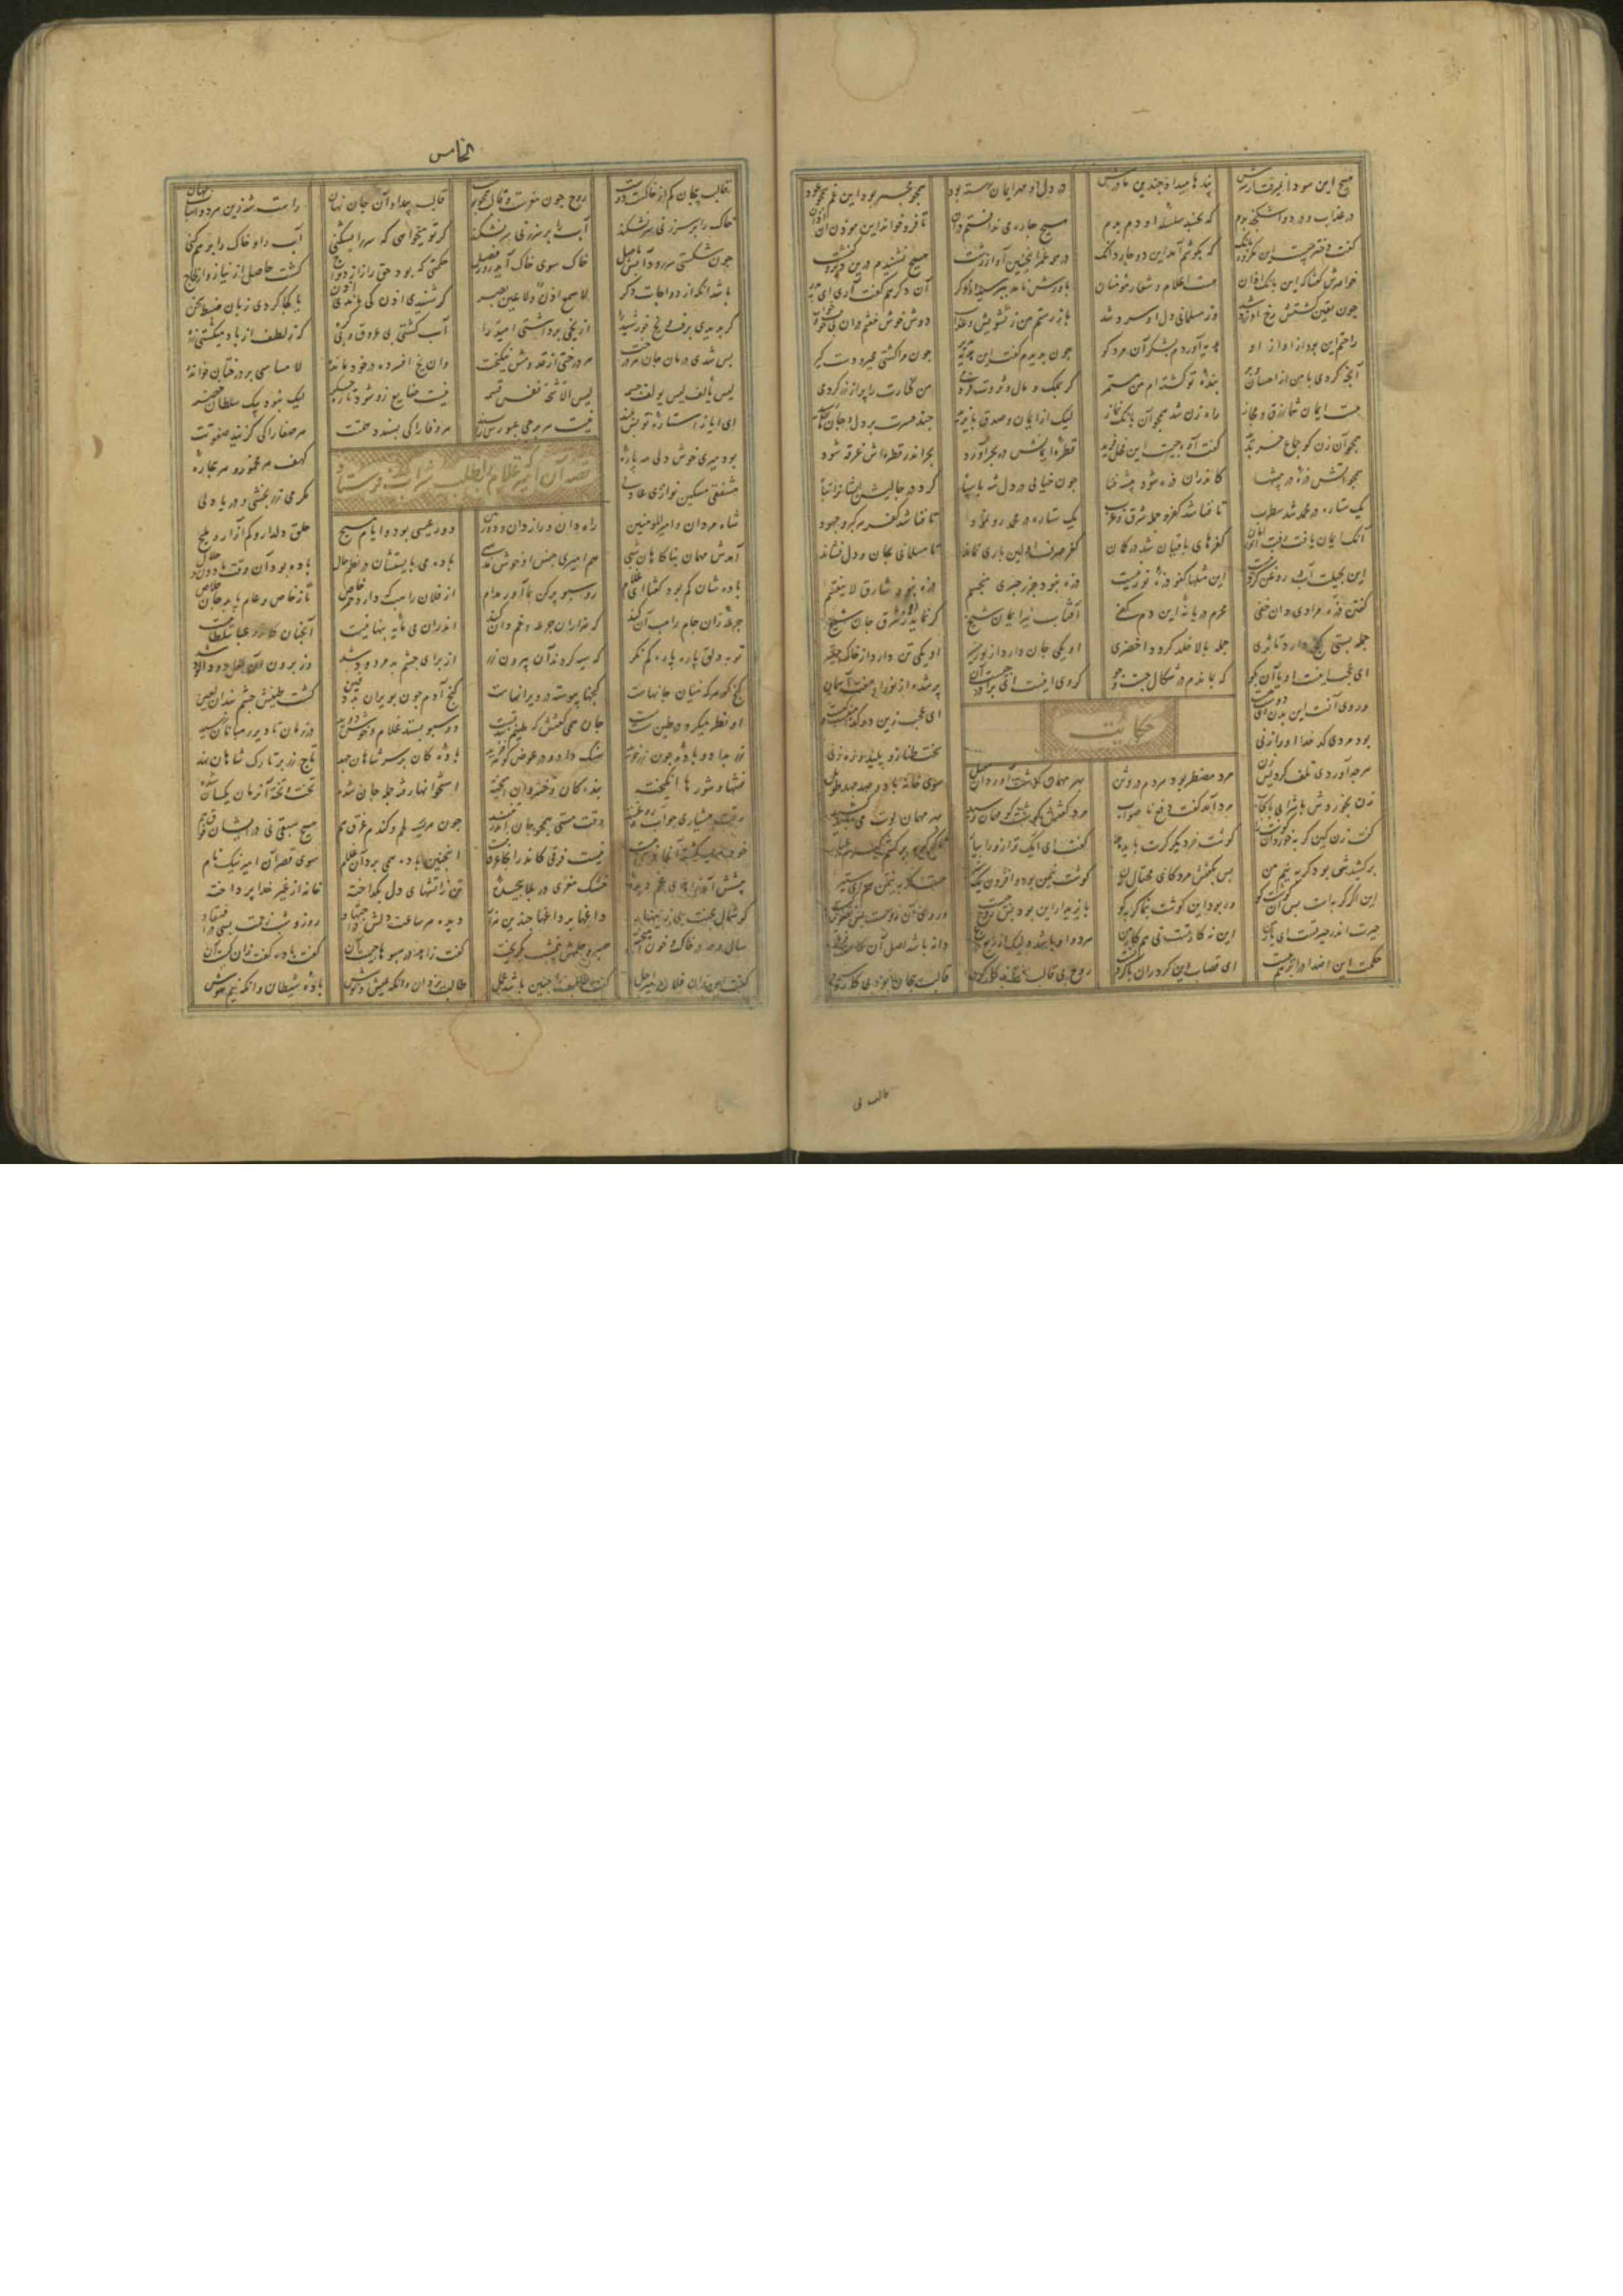 هیچ این سودا نمیرفت از سرش پندها میداد چندین مادرش در دل او مهر ایمان رسته بود همچو مجمر بود این غم من چو عود
در عذاب و درد و اشکنجه بدم که بجنبد سلسله او دم بدم هیچ چاره می ندانستم در آن تا فرو خواند این موذن آن اذان
گفت دختر چیست این مکروه بانگ که بگوشم آمد این دو چار دانگ در همه عمر اینچنین آواز زشت هیچ نشنیدم درین دیر و کنشت
خواهرش گفتا که این بانگ اذان هست اعلام و شعار مومنان باورش نامد بپرسید از دگر آن دگر هم گفت آری ای پدر
چون یقین گشتش رخ او زرد شد وز مسلمانی دل او سرد شد باز رستم من ز تشویش و عذاب دوش خوش خفتم در آن بی خوف خواب
راحتم این بود از آواز او هدیه آوردم بشکر آن مرد کو چون بدیدم گفت این هدیه پذیر چون مرا گشتی مجیر و دستگیر
آنچه کردی با من از احسان و بر بنده تو گشته ام من مستمر گر بملک و مال و ثروت فردمی من دهانت را پر از زر کردمی
هست ایمان شما زرق و مجاز راه زن شد همچو آن بانگ نماز لیک از ایمان و صدق بایزید چند حسرت بر دل و جانم رسید
همچو آن زن کو جماع خر بدید گفت آوه چیست این فحل فرید قطره ایمانش در بحر آورد بحر اندر قطره اش غرقه شود
همچو آتش ذره در بیشها کاندران ذره شود بیشه فنا چون خیالی در دل شه یا سپاه کرد در چالیش ایشانرا تباه
یک ستاره در محمد شد سطبر تا فنا شد کفر و جمله شرق و غرب یک ستاره در محمد رو نمود تا فنا شد کفر هر گبر و جهود
آنک ایمان یافت رفت اندر امان کفرهای باقیان شد در گمان کفر صرف اولین باری نماند نا مسلمانی بجان و دل نشاند
این بحیلت آب و روغن کردنیست این مثلها کفو ذره نور نیست ذره نبود جز چیزی منجسم ذره نبود شارق لا ینقسم
گفتن ذره مرادی دان خفی محرم دریا نه این دم کفی آفتاب نیر ایمان شیخ گر نماید رخ ز شرق جان شیخ
جمله پستی گنج دارد تا ثری جمله بالا خلد گردد اخضری او یکی جان دارد از نور منیر او یکی تن دارد از خاک حقیر
ای عجب اینست او یا آن بگو که بماندم در شکال جست و جو گر وی اینست ای برادر چیست آن پر شده از نور او هفت آسمان
ور وی آنست این بدن ای دوست چیست ای عجب زین دو کدامست
حکایت
بود مردی کدخدا او را زنی سخت طناز و پلید و رهزنی
هرچه آوردی تلف کردیش زن مرد مضطر بود مردم در و تن بهر مهمان گوشت آورد آن معیل سوی خانه با دو صد جهد طویل
زن بخوردش با شراب و با کباب مرد آمد گفت دفع ناصواب مرد گفتش گوشت کو مهمان رسید بهر مهمان لوت می
گفت زن این گربه خورد آن گوشت را گوشت خر دیگر گرت باید هلا گفت ای ایبک ترازو را بیار
برکشیدش بود گربه نیم من پس بگفتش مرد کای محتال زن گوشت نیم من بود و افزون یک ستیر هست گربه نیم من هم ای ستیر
این اگر گربه است پس آن گوشت کو ور بود این گوشت بنما گربه کو بایزید ار این بود آن روح چیست ور وی آن روحست این تصویر کیست
حیرت اندر حیرتست ای یار من این نه کار تست نی هم کار من هر دو او باشد ولیک از ریع زرع دانه باشد اصل آن
حکمت این اضداد را بر هم ببست ای قصاب این گرد ران با گردنست روح بی قالب نداند کار کرد قالب بیجان بود بی کار و سرد
قالب بی
الخامس
قالب بیجان کم از خاکست دوست روح چون مغزست و قالب همچو پوست قالبت پیدا و آن جان نهان راست شد زین هر دو اسباب جهان
خاک را بر سر زنی سر نشکند آب را بر سر زنی سر نشکند گر تو میخواهی که سر را بشکنی آب را و خاک را بر هم زنی
چون شکستی سر رود آبش باصل خاک سوی خاک آید روز فصل حکمتی که بود حق را ز ازدواج گشت حاصل از نیاز و از لجاج
باشد آنگه ازدواجات دگر لا سمع اذن و لا عین بصر گر شنیدی اذن کی ماندی اذن یا کجا کردی زبان ضبط سخن
گر بدیدی برف و یخ خورشید را از یخی برداشتی امید را آب گشتی بی عروق و بی گره کز لطف از باد میگشتی زره
پس شدی درمان جان هر درخت هر درختی از قدومش نیکبخت وان یخ افسرده در خود مانده لا مساسی بر درختان خوانده
لیس یألف لیس یؤلف جسمه لیس الا شح نفس قسمه نیست ضایع زو شود تازه جگر لیک نبود پیک سلطان خضر
ای ایاز استاره تو بس بلند نیست هر برجی عبورش را پسند هر وفا را کی پسندد همتت هر صفا را کی گزیند صفوتت
قصه آن امیر که غلام را بطلب شراب فرستاد
بود میری خوش دلی می باره کهف هر مخمور و هر بیچاره
مشفقی مسکین نوازی عادلی مکرمی زر بخشی و دریا دلی
شاه مردان و امیر المومنین راه دان و راز دان و دور بین دور عیسی بود و ایام مسیح خلق دلدار و کم آزار و ملیح
آمدش مهمان بناگاهان شبی هم امیری جنس او خوش مذهبی باده می بایستشان در نظم حال باده بود آن وقت ماذون و حلال
باده شان کم بود گفتا ای غلام رو سبو پر کن بما آور مدام از فلان راهب که دارد خمر خاص تا ز خاص و عام یابد جان خلاص
جرعه زان جام راهب آن کند که هزاران جره و خمدان کند اندران می مایه پنهانیست آنچنان کاندر عبا سلطانیست
تو بدلق پاره پاره کم نگر که سیه کردند آن بیرون زر از برای چشم بد مردود شد وز برون آن لعل دود آلود شد
گنج گوهر کی میان خانهاست گنجها پیوسته در ویرانهاست گنج آدم چون بویران بد دفین گشت طینش چشم بند آن لعین
او نظر میکرد در طین سست سست جان همی گفتش که طینم سد تست دو سبو بستد غلام و خوش دوید در زمان تا دیر رهبانان رسید
زر بداد و باده چون زر خرید سنگ داد و در عوض گوهر خرید باده کان بر سر شاهان جهد تاج زر بر تارک شاهان نهد
فتنها و شورها انگیخته بندگان و خسروان آمیخته استخوانها رفته جمله جان شده تخت و تخته آن زمان یکسان شده
وقت هشیاری چو آب و روغنند وقت مستی همچو جان اندر تنند چون هریسه لحم و گندم غرق هم هیچ سبقی نی در ایشان
نیست فرقی کاندر آنجا غرق نیست اینچنین باده همی برد آن غلام سوی قصر آن امیر نیک نام
پیشش آمد زاهدی غم دیده خشک مغزی در بلا پیچیده تن ز آتشهای دل بگداخته خانه از غیر خدا پرداخته
گوشمال محنت بی زینهار داغها بر داغها چندین هزار دیده هر ساعت دلش در اجتهاد روز و شب
سال و مه در خاک و خون آمیخته صبر و حلمش نیم شب بگریخته گفت زاهد در سبوها چیست آن گفت باده گفت آن کیست آن
گفت این زان فلان میر اجل گفت طالب را چنین باشد عمل طالب یزدان و آنگه عیش و نوش باده شیطان و آنگه نیم هوش